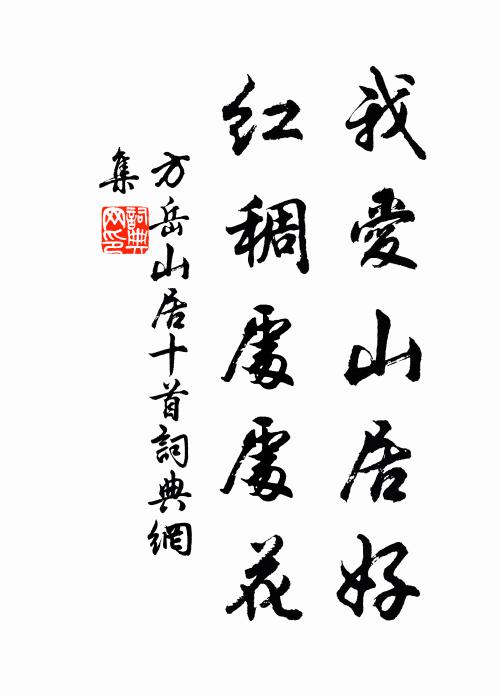 我愛山居好
紅稠處處花
方岳山居十首詞典網
集
詞典
网印